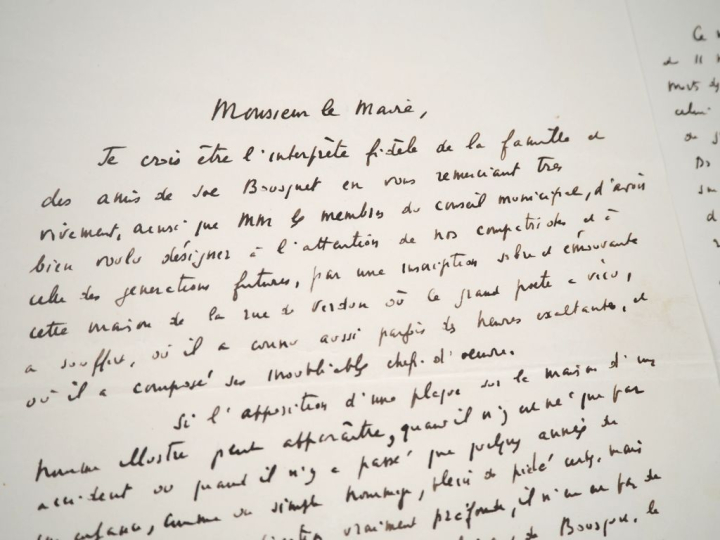 Monsieur le Maire,
Je crois être l'interprète fidèle de la famille et
des amis de Joe Bousquet en vous remerciant très
vivement, ainsi que MM les membres du conseil municipal, d'avoir
bien voulu désigner à l'attention de nos compatriotes et à
celle des générations futures, par une inscription sobre et émouvante
cette maison de la rue de Verdun où ce grand poète a vécu,
a souffert, où il a connu aussi parfois des heures exaltantes, et
où il a composé ses inoubliables chefs-d'oeuvre.
Si l'apposition d'une plaque sur la maison d'un
homme illustre peut apparaître, quand il n'y est né que par
accident ou quand il n'y a passé que quelques années de
son enfance, comme un simple hommage, plein de piété certes, mais
vraiment profonde, il n'en est pas de
de Bousquet. le
Ce
de 11
mots
celui
de